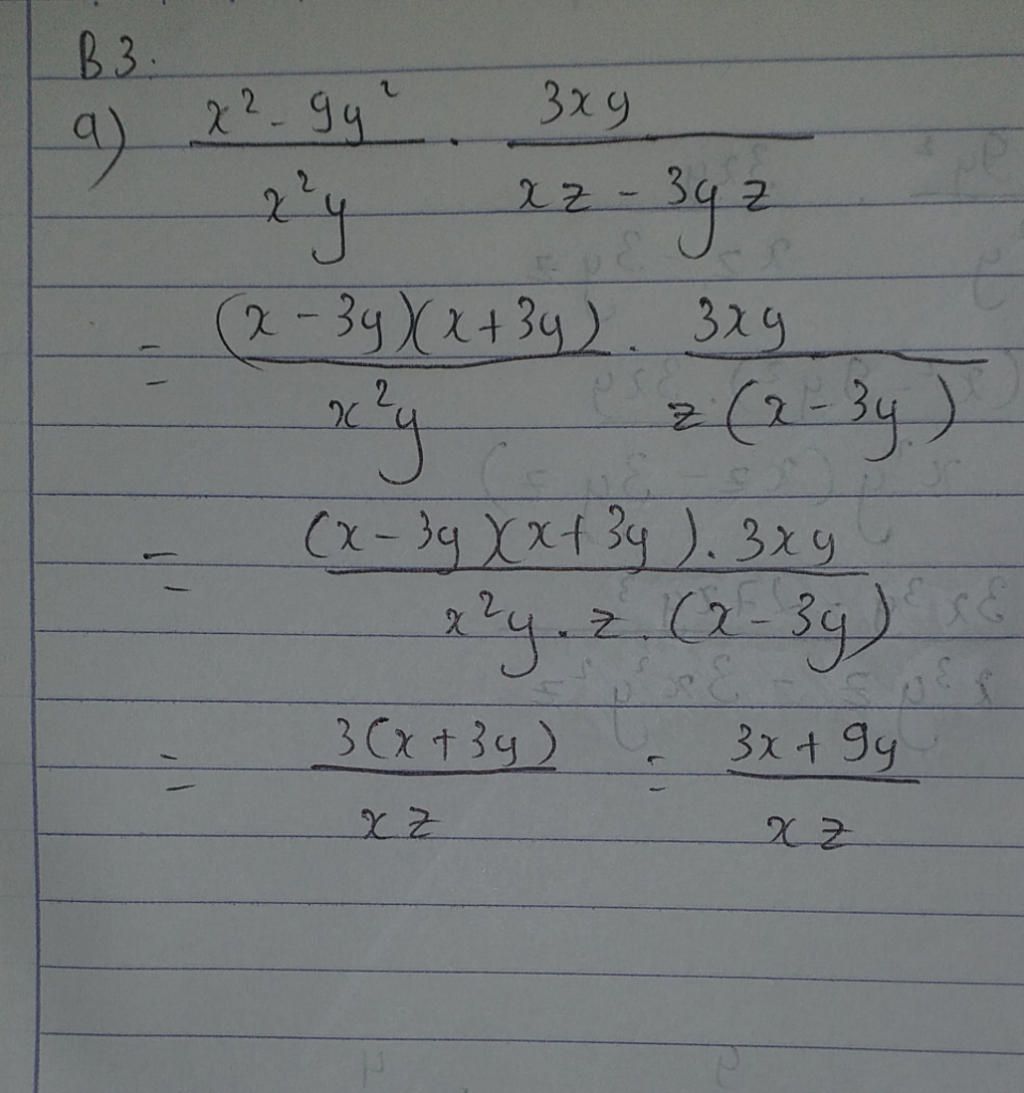 B3.
a) \frac{x^2 - 9y^2}{x^2y} . \frac{3xy}{xz - 3yz}
= \frac{(x - 3y)(x + 3y)}{x^2y} . \frac{3xy}{z(x - 3y)}
= \frac{(x - 3y)(x + 3y) . 3xy}{x^2y . z . (x - 3y)}
= \frac{3(x + 3y)}{xz} = \frac{3x + 9y}{xz}